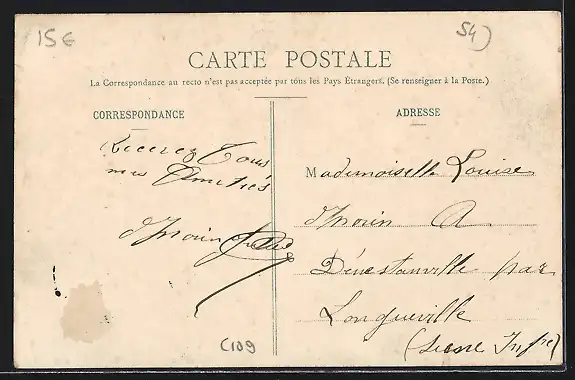 15€
54)
CARTE POSTALE
La Correspondance au recto n'est pas acceptée par tous les Pays Étrangers. (Se renseigner à la Poste.)
CORRESPONDANCE
ADRESSE
Recevez Tous
mes Amitiés
Mademoiselle Louise
A
Dénestanville par
Longueville
(Seine Infre)
C109